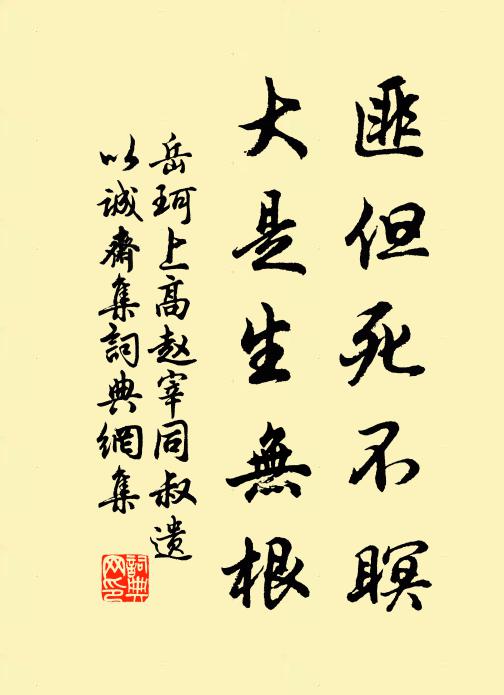 匪但死不暝
大是生無根
岳珂上高赵宰同叔遗
以诚齋集詞典網集
詞典网印